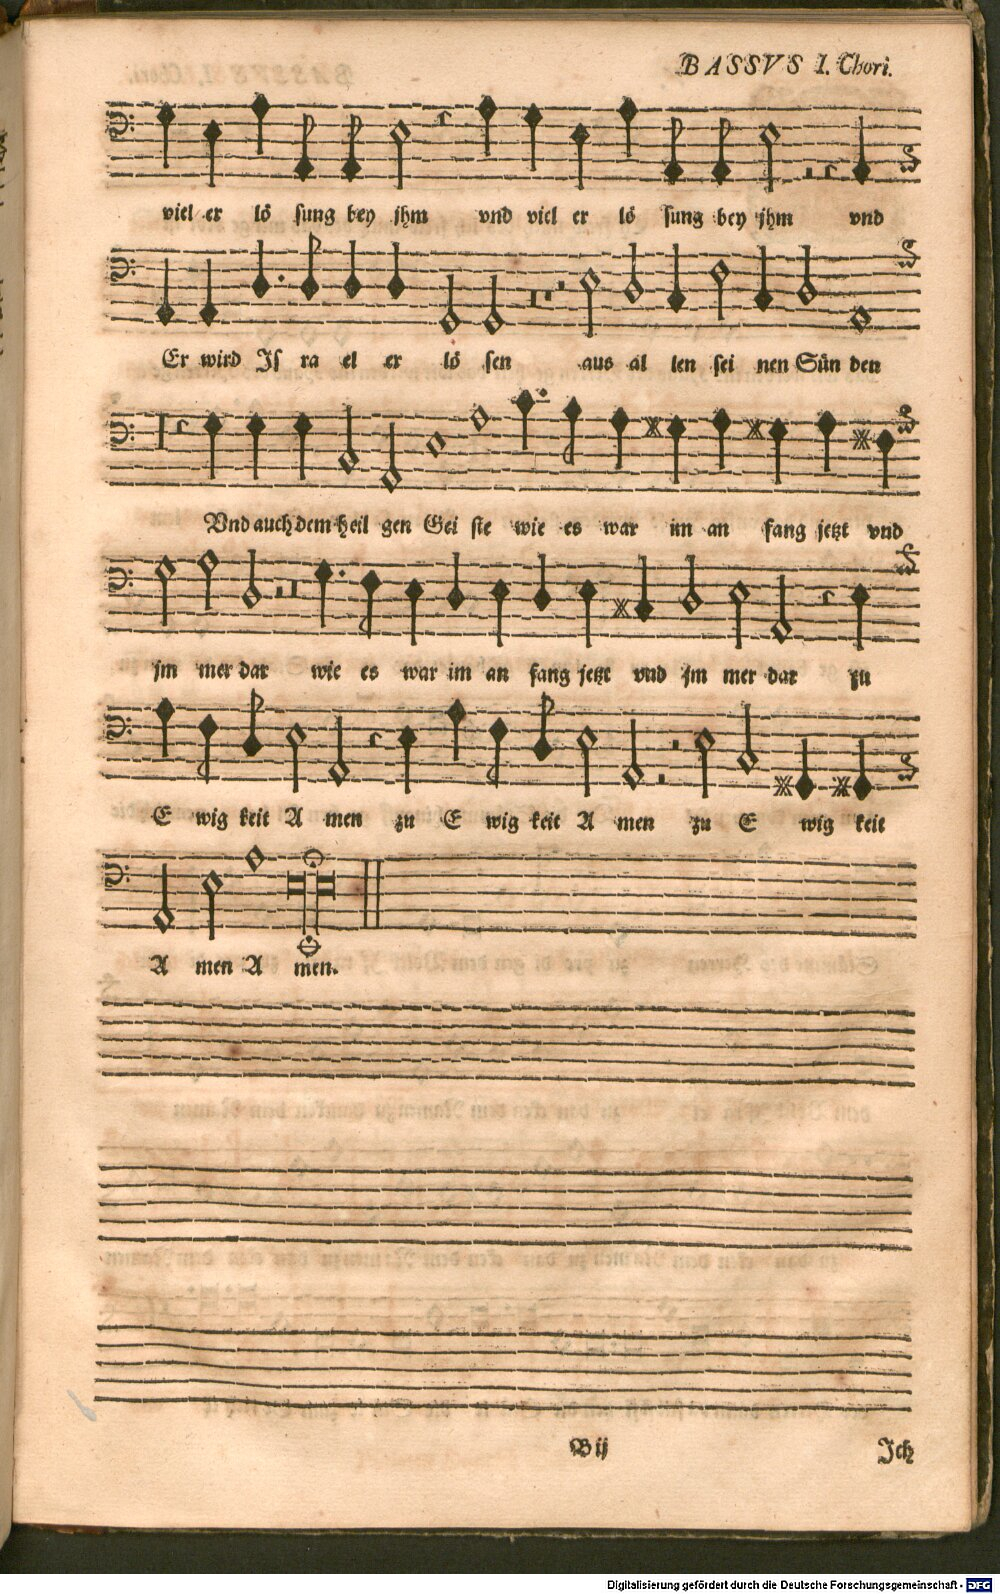 BASSVS I. Chori.
viel er lö sung bey jhm vnd viel er lö sung bey jhm vnd
Er wird Jſ ra el er lö ſen aus al len ſei nen Sün den
Vnd auch dem heil gen Gei ſte wie es war im an fang jetzt vnd
jm mer dar wie es war im an fang jetzt vnd jm mer dar zu
E wig keit A men zu E wig keit A men zu E wig keit
A men A men.
Bij Jch
Digitalisierung gefördert durch die Deutsche Forschungsgemeinschaft - DFG